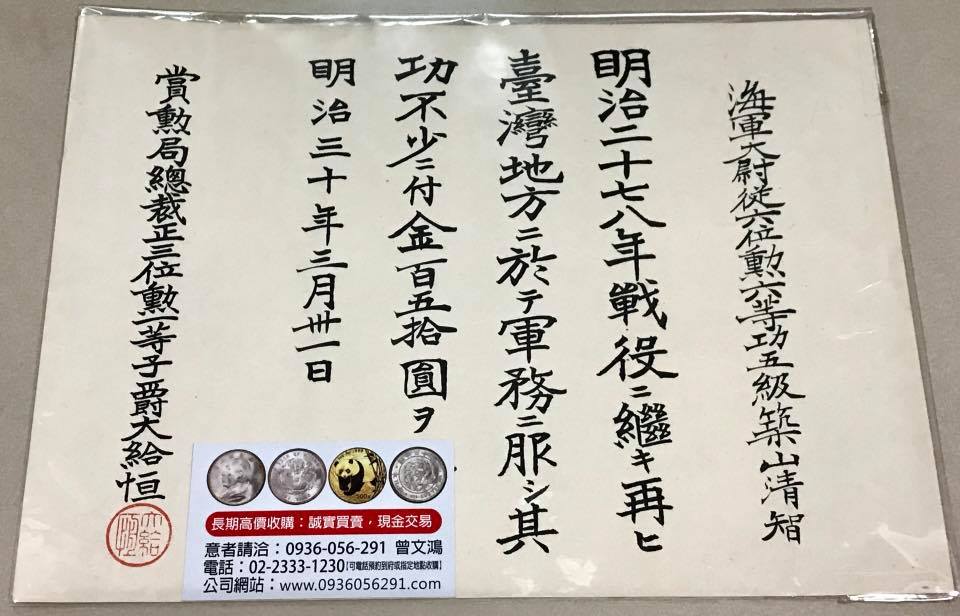 海軍大尉従六位勲六等功五級築山清智
明治二十七八年戰役ニ繼キ再ヒ
臺灣地方ニ於テ軍務ニ服シ其
功不少ニ付金百五拾圓ヲ
明治三十年三月卅一日
賞勲局總裁正三位勲一等子爵大給恒
大給恒
長期高價收購：誠實買賣，現金交易
意者請洽：0936-056-291 曾文鴻
電話：02-2333-1230【可電話預約到府或指定地點收購】
公司網站：www.0936056291.com